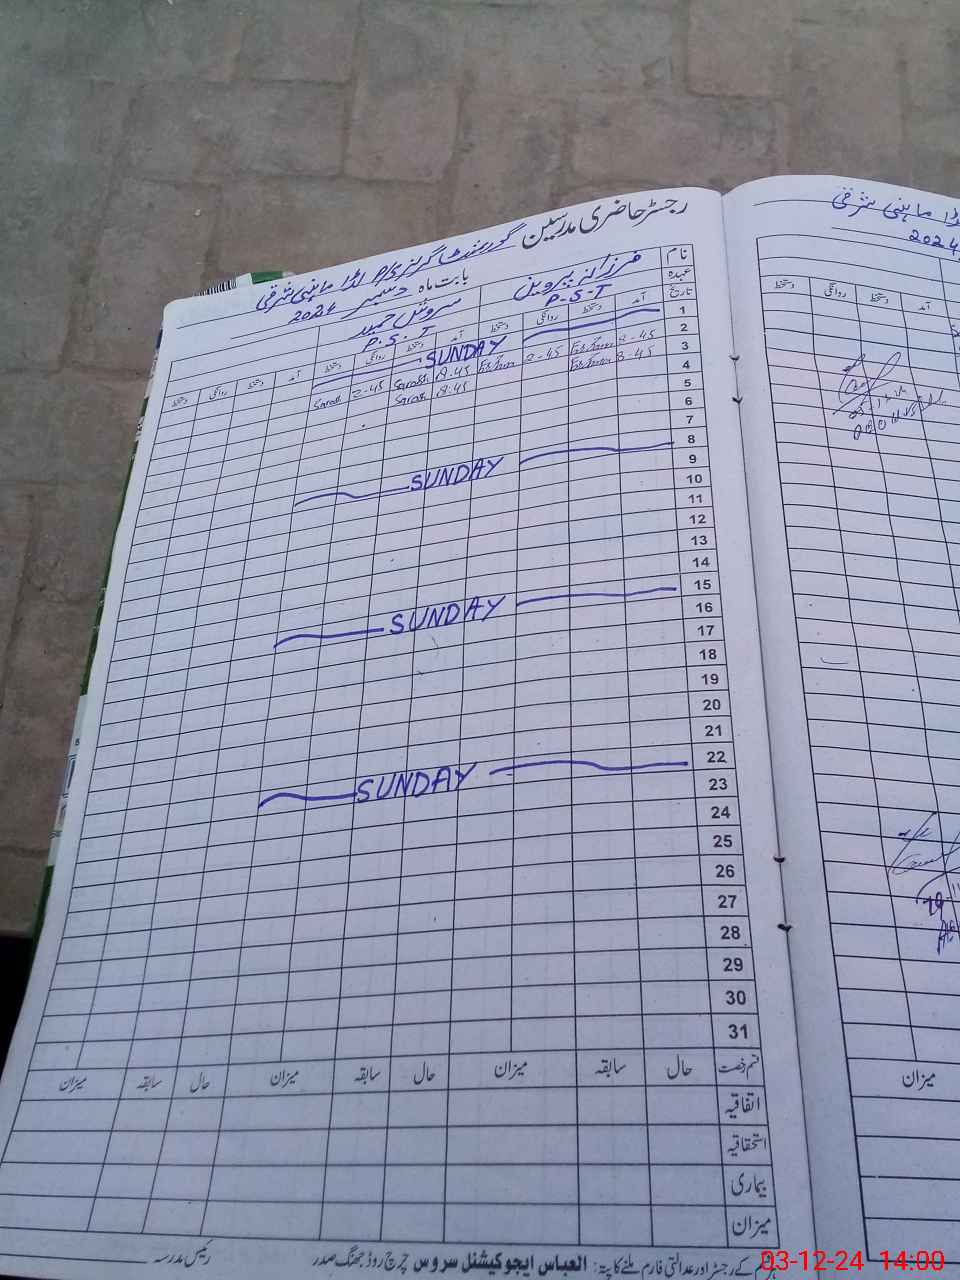 رجسٹر حاضری مدرسین گورنمنٹ گرلز P/S اڈا ماہنی شرقی
بابت ماہ دسمبر 2024
نام فرزانہ پروین
عہدہ P.S.T P.S.T
تاریخ آمد دستخط روانگی دستخط آمد دستخط روانگی دستخط آمد دستخط
1 SUNDAY
2 8-45 2-45 8.45 2-45
3 8-45 8:45
4
5
6
7
8 SUNDAY
9
10
11
12
13
14
15 SUNDAY
16
17
18
19
20
21
22 SUNDAY
23
24
25
26
27
28
29
30
31
قسم رخصت حال سابقہ میزان حال سابقہ میزان حال سابقہ میزان
اتفاقیہ
استحقاقیہ
بیماری
میزان
رئیس مدرسہ
ہر قسم کے رجسٹر اور عدالتی فارم ملنے کا پتہ: العباس ایجوکیشنل سروس چرچ روڈ جھنگ صدر
ماہنی شرقی
2024
دستخط روانگی دستخط آمد
میزان
03-12-24 14:00